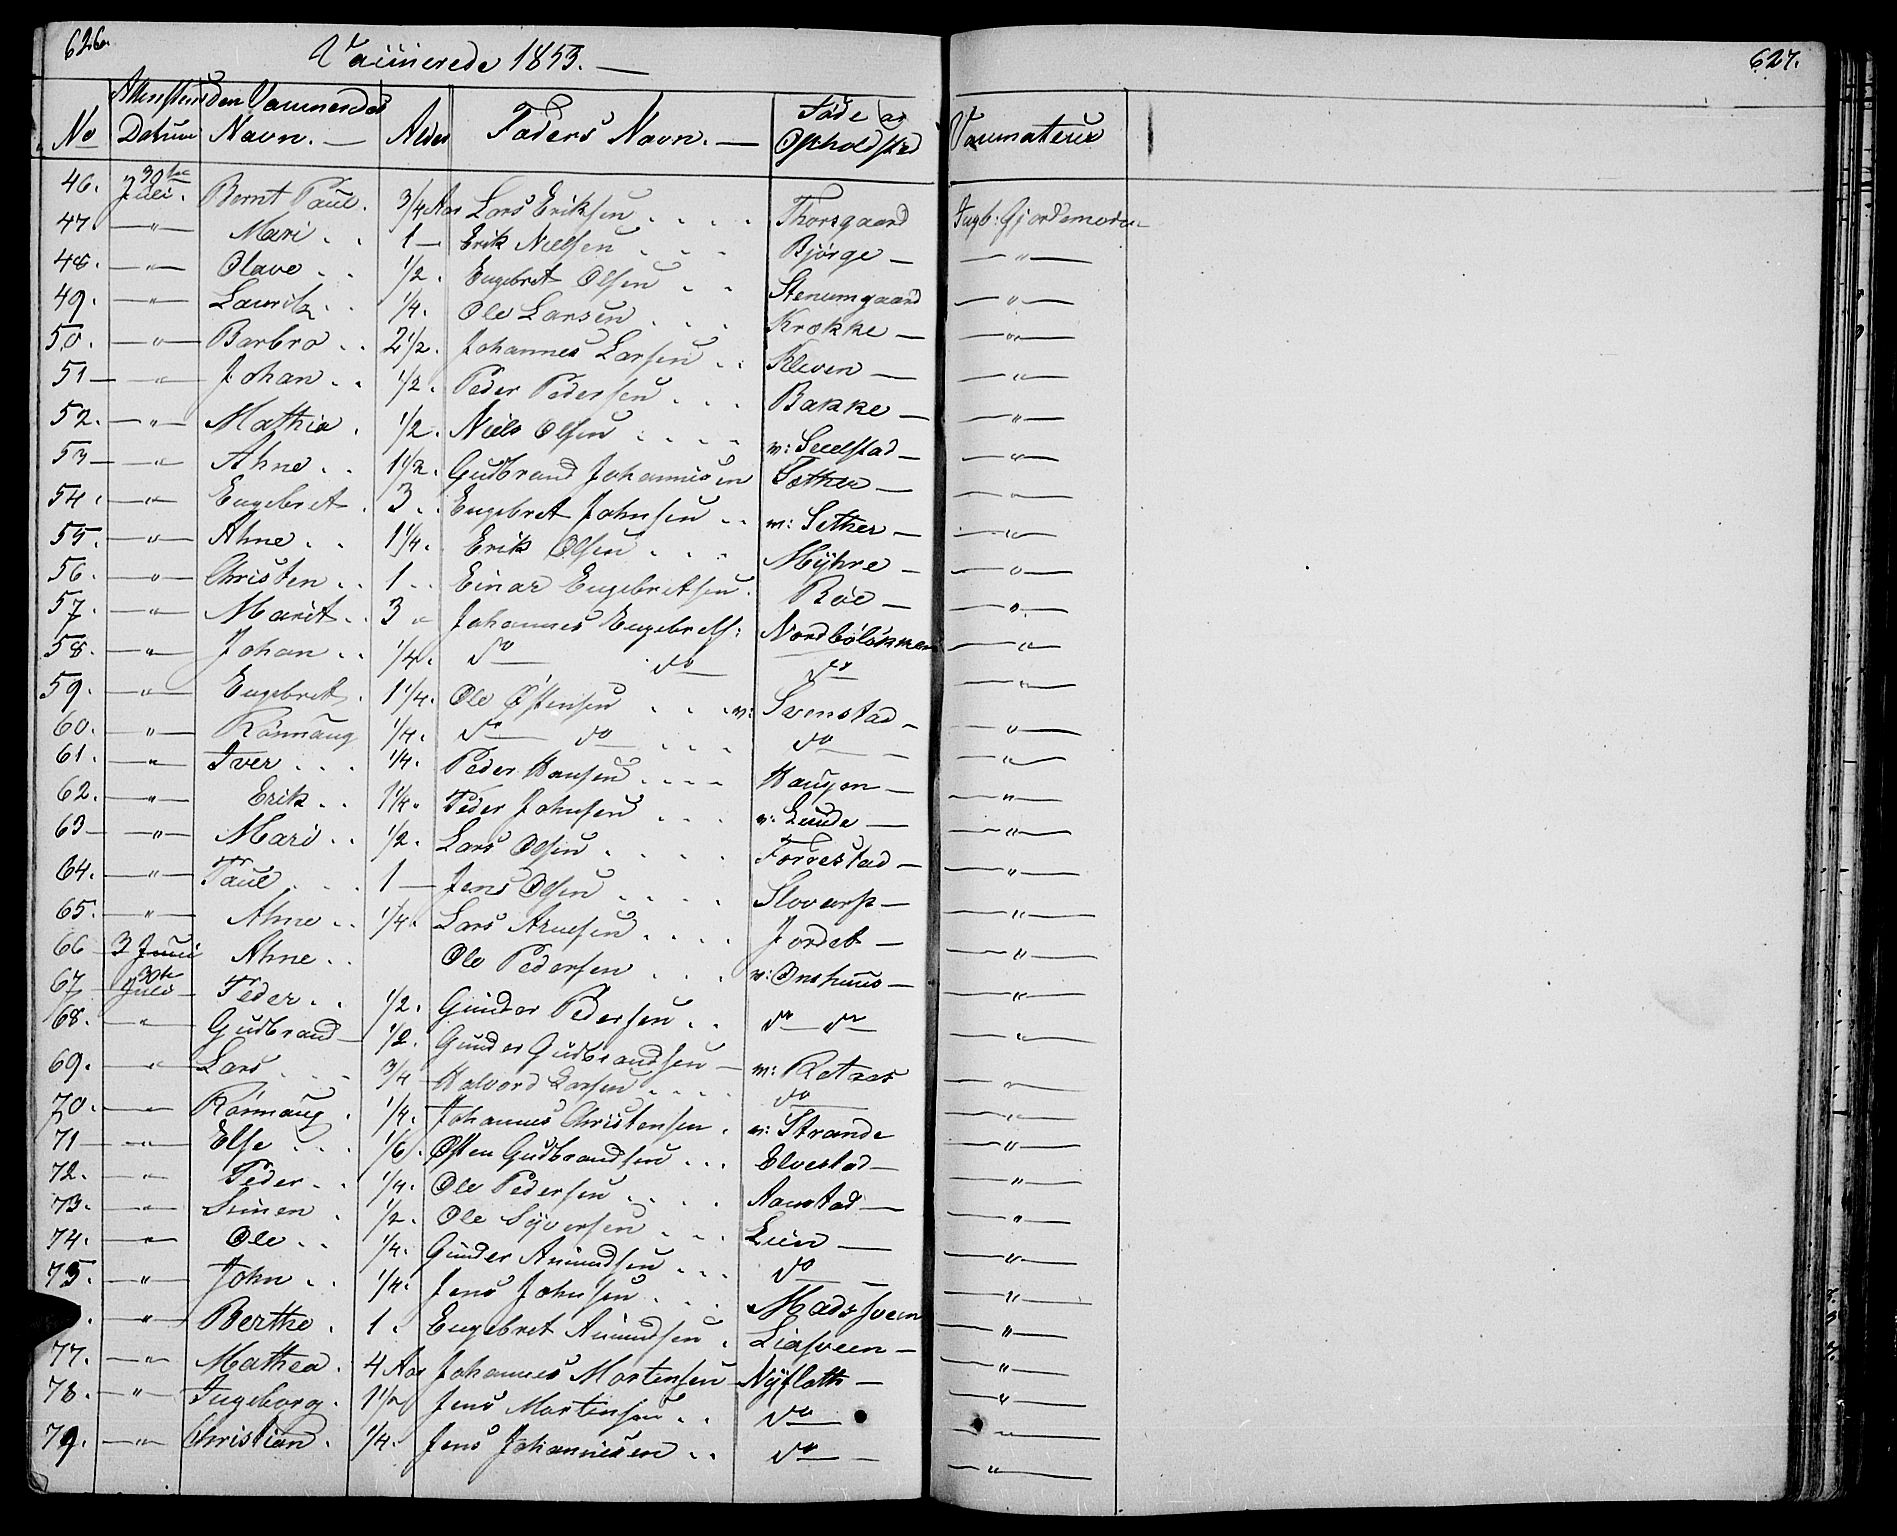 626.
Vaccinerede 1853. —
No Attestens Datum den Vaccineredes Navn. — Alder Faders Navn. — Føde og Opholdsted Vaccinateur
46. 30te Juli. Bernt Paul. 3/4 Aar Lars Eriksen . . . . Thorsgaard Ingb: Gjordemoder
47 —"— Mari . . 1 — Erik Nielsen . . . Bjørge — —"—
48. —"— Olave . . 1/2. Engebret Olsen . . Stenumgaard —"—
49. —"— Lauritz . . 1/4. Ole Larsen . . . Krække — —"—
50. —"— Barbro . . 2 1/2. Johannes Larsen . . Kleven — —"—
51 — —"— Johan . . 1/2. Peder Pedersen . . . Bakke — —"—
52. —"— Mathia . 1/2. Niels Olsen . . . . v: — —"—
53 — —"— Ahne . . 1 1/2. Gudbrand Johannesen Sæther — —"—
54. —"— Engebret . 3 . . Engebret Johnsen . . v: Sether — —"—
55. —"— Ahne . . 1 1/4. Erik Olsen . . . Myhre — —"—
56. —"— Christen . . 1 . . Einar Engebretsen. Röe — —"—
57. —"— Marit . . 3 " Johannes Engebrets: Nordbölökken —"—
58. —"— Johan . . 1/4. do — do — do — —"—
59. —"— Engebret . 1 1/4. Ole Østensen . . . v: Svenstad — —"—
60. —"— Rönnaug 1/4. do — do . . . do — —"—
61. —"— Iver . . . 1/4. Peder Hansen . . . . Haugen — —"—
62. —"— Erik . . 1 1/4. Peder Johnsen . . . v: Lunde — —"—
63 — —"— Mari . . 1/2. Lars Olsen . . . . Forrestad — —"—
64. —"— Paul . . . 1 — Jens Olsen . . . . Slovarp — —"—
65. —"— Ahne . . 1/4. Lars Arnesen . . . . Jordet — —"—
66 — 3 Juni Ahne . . Ole Pedersen . . . v: Onshuus — —"—
67 — 30te Juli — Peder . . 1/2. Gunder Pedersen . . do — do — —"—
68. —"— Gudbrand — 1/2. Gunder Gudbrandsen — v: —"—
69. —"— Lars . . . 3/4 Halvord Larsen . . . . do — —"—
70. —"— Rönnaug . 1/4. Johannes Christensen . v: Strande —"—
71 — —"— Else . . . 1/6. Østen Gudbrandsen . . . Elvestad — —"—
72. —"— Peder . . 1/4. Ole Pedersen . . . . Aamstad — —"—
73. —"— Simen . 1/2. Ole Syversen . . . Lien — —"—
74. —"— Ole . . 1/4. Gunder Amundsen . . . do — —"—
75. —"— John . . 1/4. Jens Johnsen . . . Madssveen —"—
. —"— Berthe . 1 . Engebret Amundsen . Liasveen — —"—
77. —"— Mathea . 4 Aar Johannes Mortensen Nyfløth — —"—
78. —"— Ingeborg . 1 1/2 Jens Mortensen . . do — —"—
79. —"— Christian . 1/4. Jens Johannesen . . do — —"—
627.